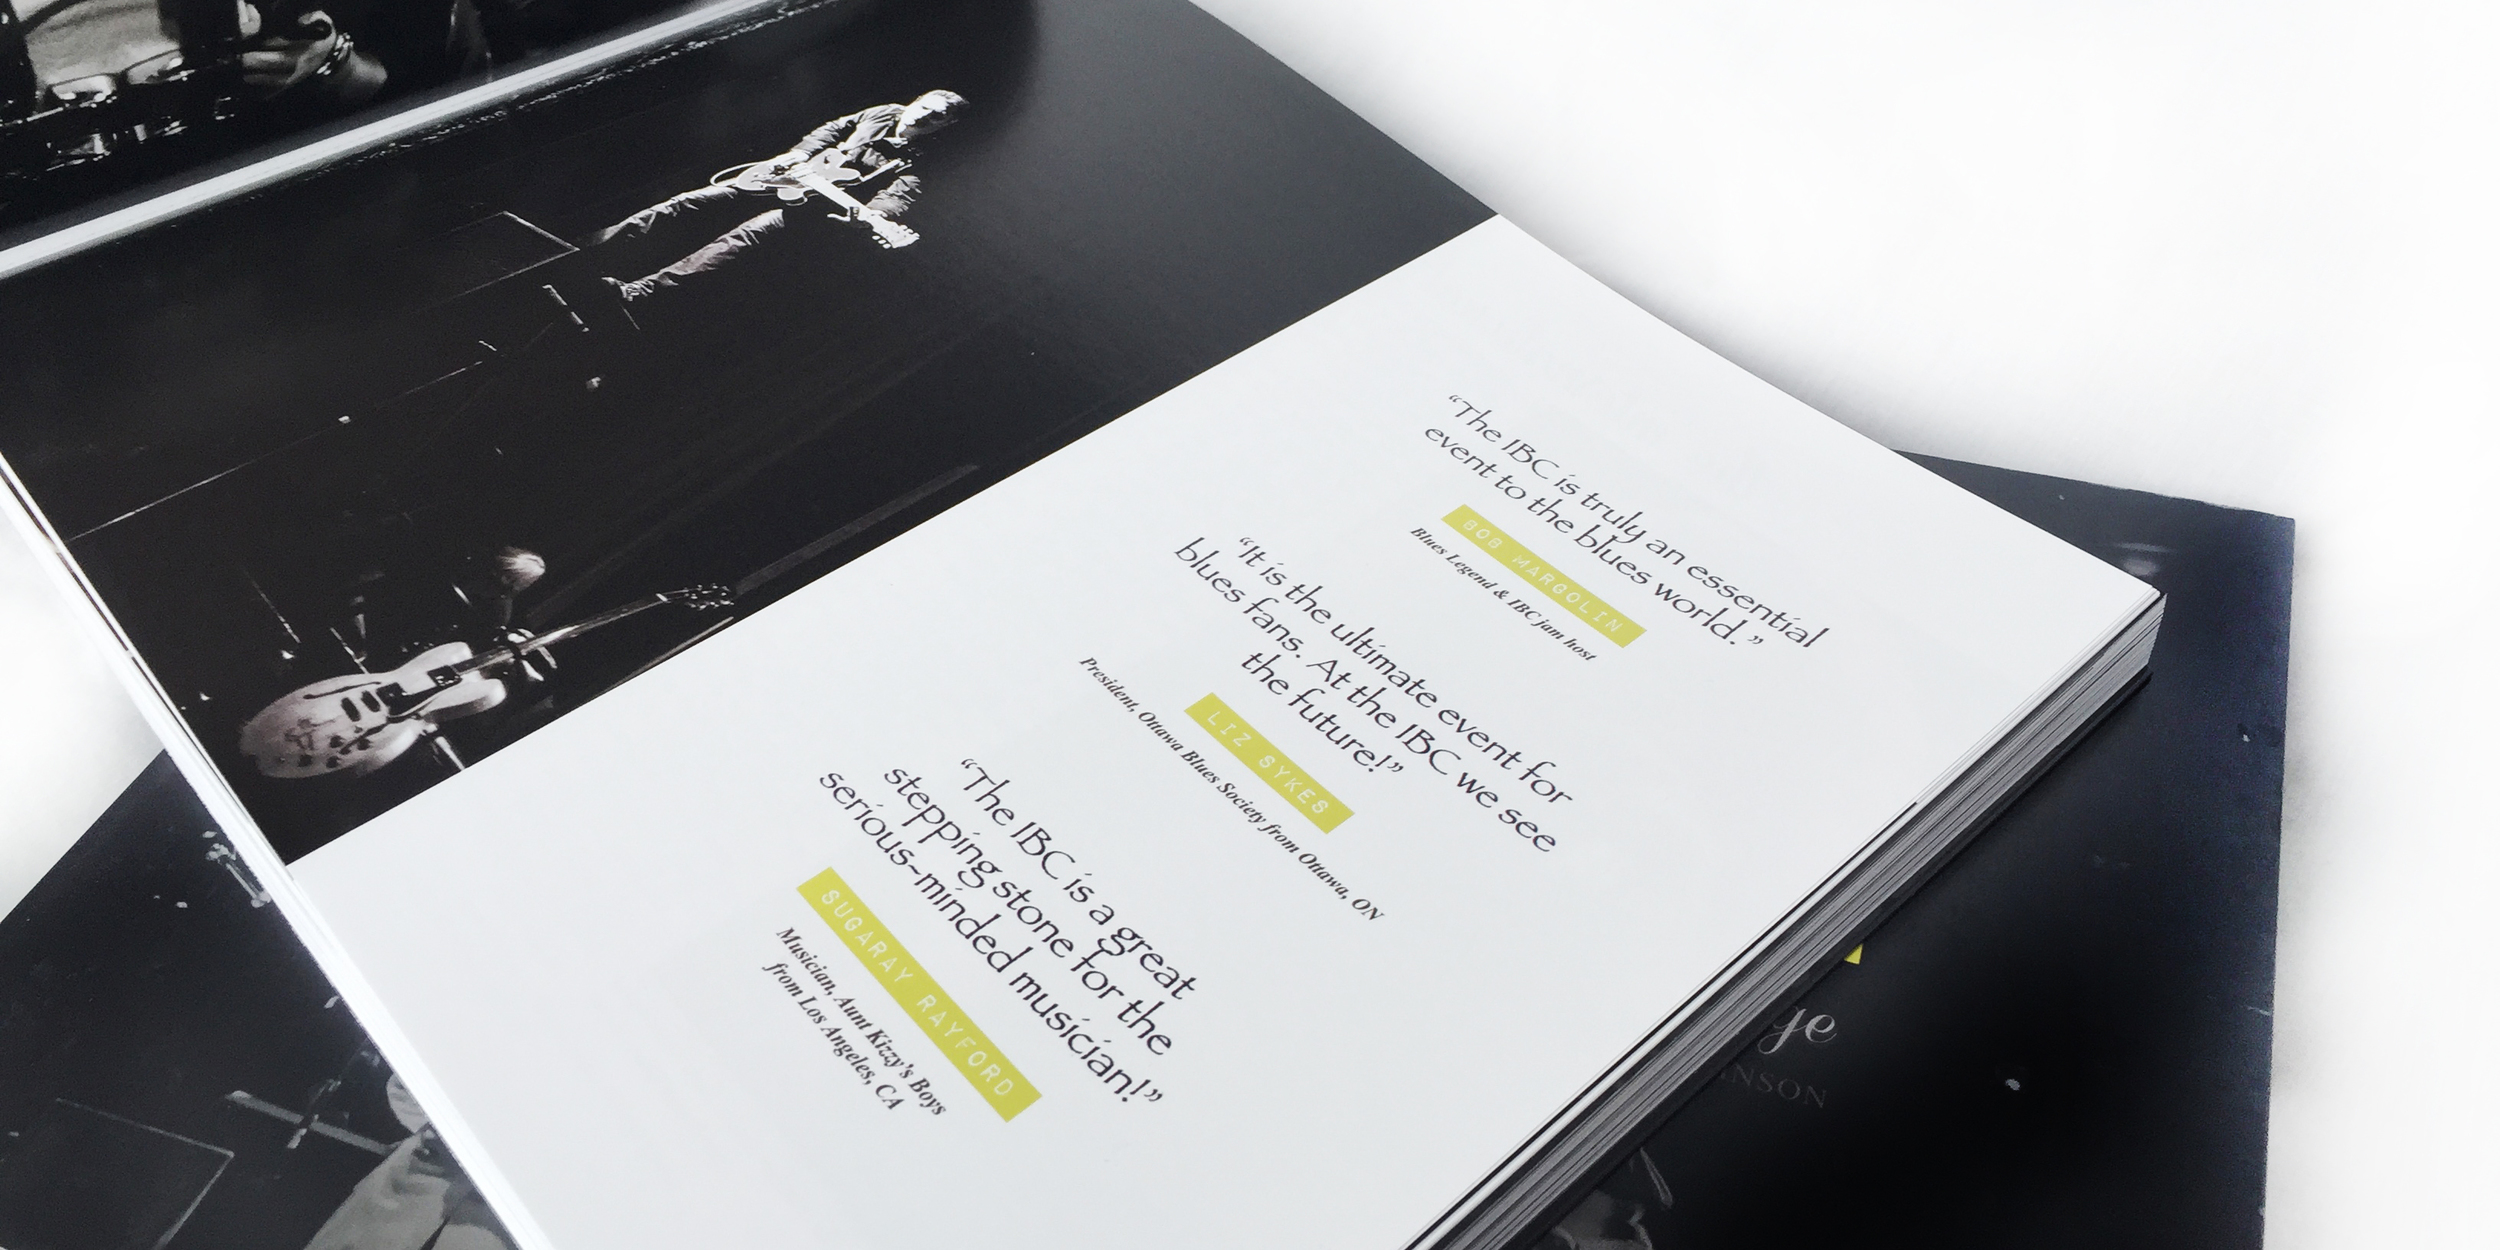 “The IBC is truly an essential
event to the blues world.”
BOB MARGOLIN
Blues Legend & IBC jam host
“It is the ultimate event for
blues fans. At the IBC we see
the future!”
LIZ SYKES
President, Ottawa Blues Society from Ottawa, ON
“The IBC is a great
stepping stone for the
serious~minded musician!”
SUGARAY RAYFORD
Musician, Aunt Kizzy's Boys
from Los Angeles, CA
ge
NSON